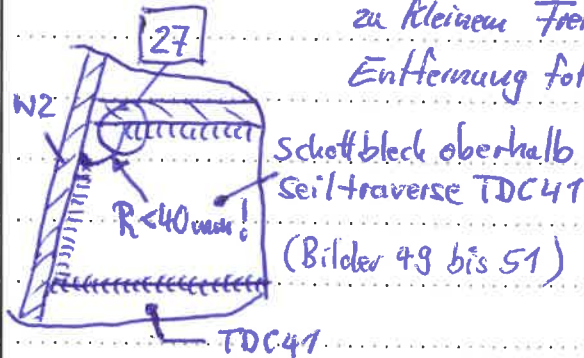 27
zu kleinem
Entfernung
W2
Schottblech oberhalb
Seiltraverse TDC41
R<40mm!
(Bilder 49 bis 51)
TDC41